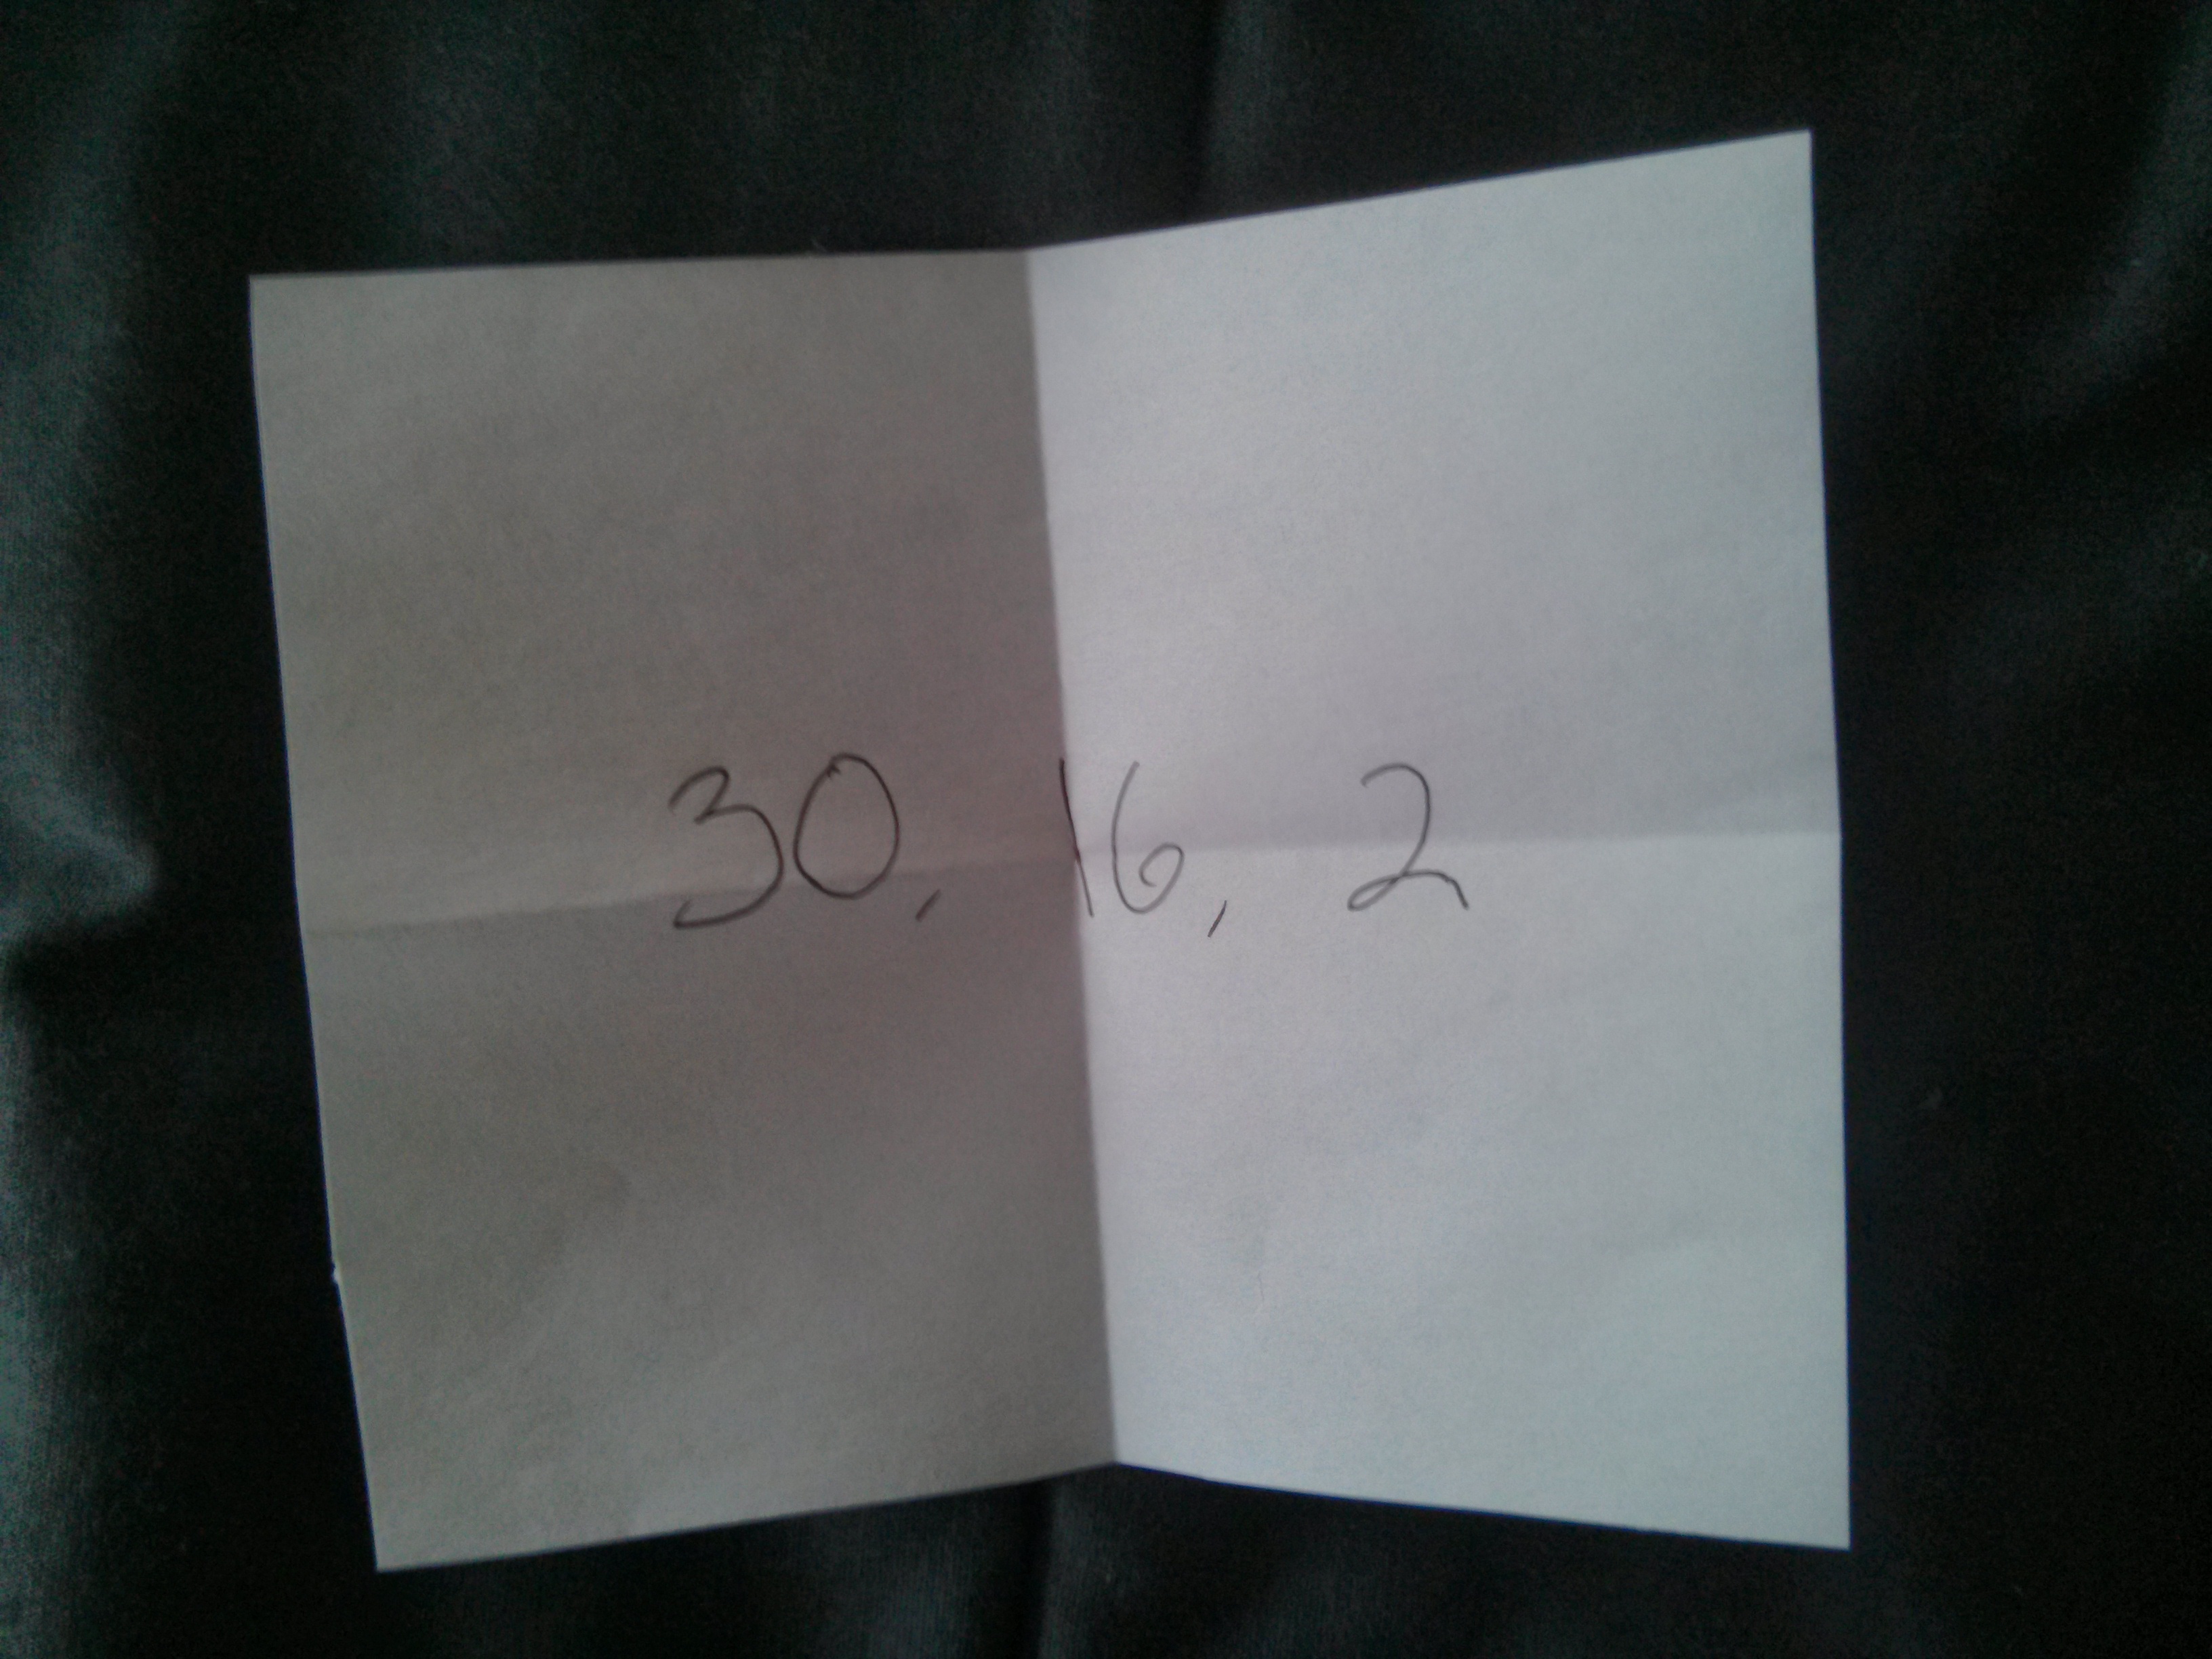 30, 16, 2